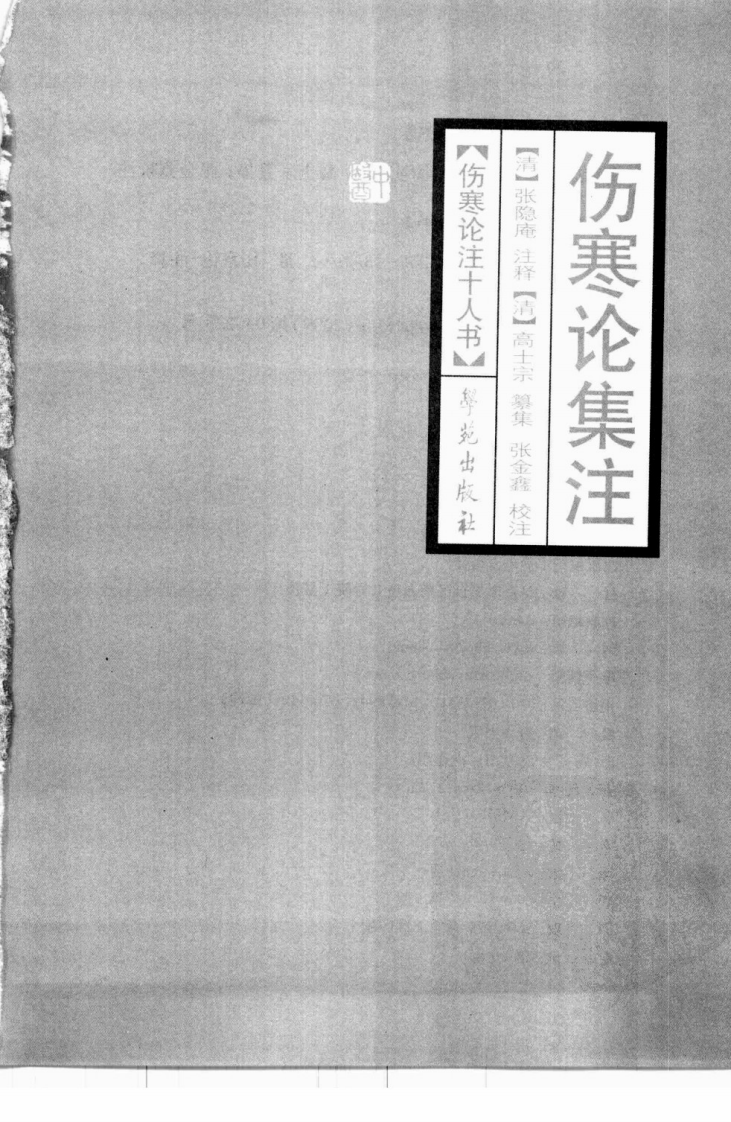 伤寒论集注
【清】张隐庵 注释【清】高士宗 纂集 张金鑫 校注
【伤寒论注十人书】
學苑出版社
中醫